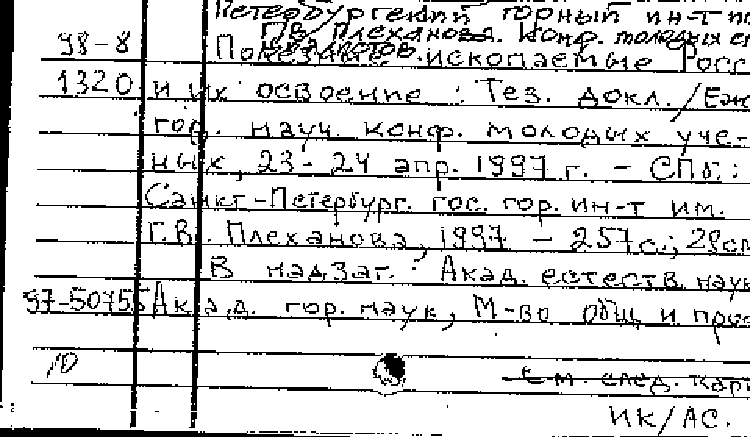 Петербургский горный ин-т
Г.В. Плеханова. Конф. молодых
98-8 Полезные ископаемые Росс
1320 и их освоение : Тез. докл. / Еж
год. науч. конф. молодых уче-
ных, 23-24 апр. 1997 г. – СПб :
Санкт-Петербург. гос. гор. ин-т им.
Г.В. Плеханова, 1997 – 257 с.; 28 см
В надзаг. : Акад. естеств. наук
97-50755 Акад. гор. наук, М-во общ. и проф
10
См. след. карт
ИК/АС.